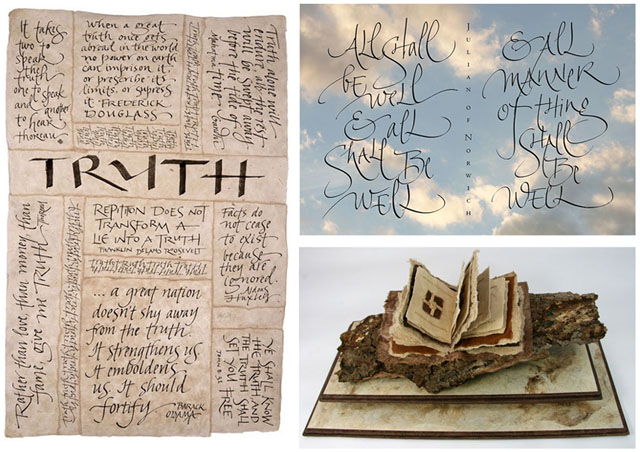 It takes
two to
speak
the
truth
one to speak
and another
to hear
thoreau
When a great
truth once gets
abroad in the world
no power on earth
can imprison it
or prescribe its
limits, or suppress
it FREDERICK
DOUGLASS
Truth alone will
endure, all the rest
will be swept away
before the tide of
time
TRUTH
Rather than love, than money than
fame, give me TRUTH
REPITION DOES NOT
TRANSFORM A
LIE INTO A TRUTH
FRANKLIN DELANO ROOSEVELT
Facts do
not cease
to exist
because
they are
ignored.
Aldous
Huxley
... a great nation
doesn't shy away
from the truth.
It strengthens us
It emboldens
us. It should
fortify
BARACK
OBAMA
YE SHALL KNOW
THE TRUTH AND
THE TRUTH SHALL
SET YOU FREE
All Shall
be Well
& all
Shall Be
WELL
JULIAN OF NORWICH
& ALL
MANNER
OF thing
Shall
Be
WELL